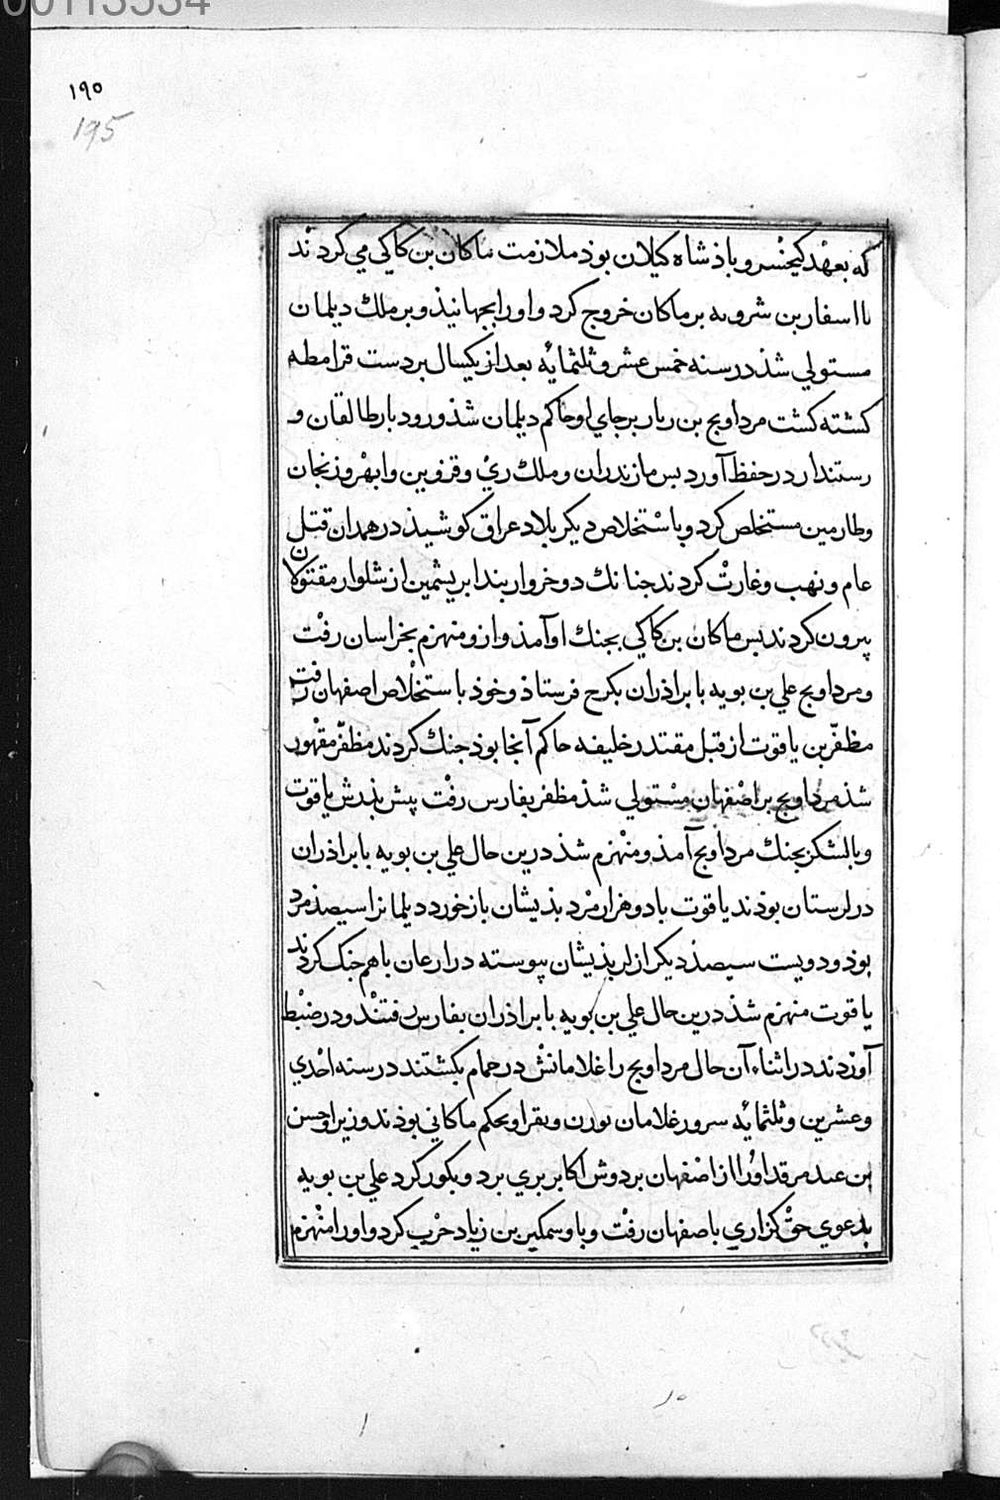 00113534
١٩٥
195
که بعهد کیخسرو باذشاه کیلان بوذ ملازمت ماکان بن کاکی می کردند
تا اسفار بن شرویه بر ماکان خروج کرد و اورا بجهانیذ و بر ملك دیلمان
مستولي شذ در سنه خمس عشر و ثلثمائه بعد از یکسال بر دست قرامطه
کشته کشت مرداویج بن زیار بر جاي او حاکم دیلمان شذ و رودبار طالقان و
رستندار در حفظ آورد بس مازندران و ملك ريْ و قزوین و ابهر و زنجان
و طارمین مستخلص کرد و باستخلاص دیکر بلاد عراق کوشیذ در همدان قتل
عام و نهب و غارت کردند جنانك دو خروار بند ابریشمین از شلوار مقتولان
بیرون کردند بس ماکان بن کاکي بجنك او آمذ و ازو منهزم بخراسان رفت
و مرداویج علي بن بویه با براذران بکرج فرستاذ و خوذ باستخلاص اصفهان رفت
مظفّر بن یاقوت از قبل مقتدر خلیفه حاکم آنجا بوذ جنك کردند مظفّر مقهور
شذ مرداویج بر اصفهان مستولي شذ مظفر بفارس رفت پیش پذرش یاقوت
و بالشکر بجنك مرداویج آمذ و منهزم شذ درین حال علي بن بویه با براذران
در لرستان بوذند یاقوت با دو هزار مرد بذیشان باز خورد دیلمانرا سیصذ مرد
بوذ و دویست سیصذ دیکر از لر بذیشان پیوسته در ارعان باهم جنک کردند
یاقوت منهزم شذ درین حال علي بن بویه با براذران بفارس رفتند و در ضبط
آوردند در اثناء آن حال مرداویج را غلامانش در حمام بکشتند در سنه احدي
و عشرین و ثلثمائه سرور غلامان تورن و بقرا و بحکم ماکاني بوذند وزیر او حسن
بن عبد مرقد اورا از اصفهان بر دوش اکابر بري برد و بکور کرد علي بن بویه
بدعوي حق کزاري باصفهان رفت و با وسمکیر بن زیاد حرب کرد و اورا منهزم